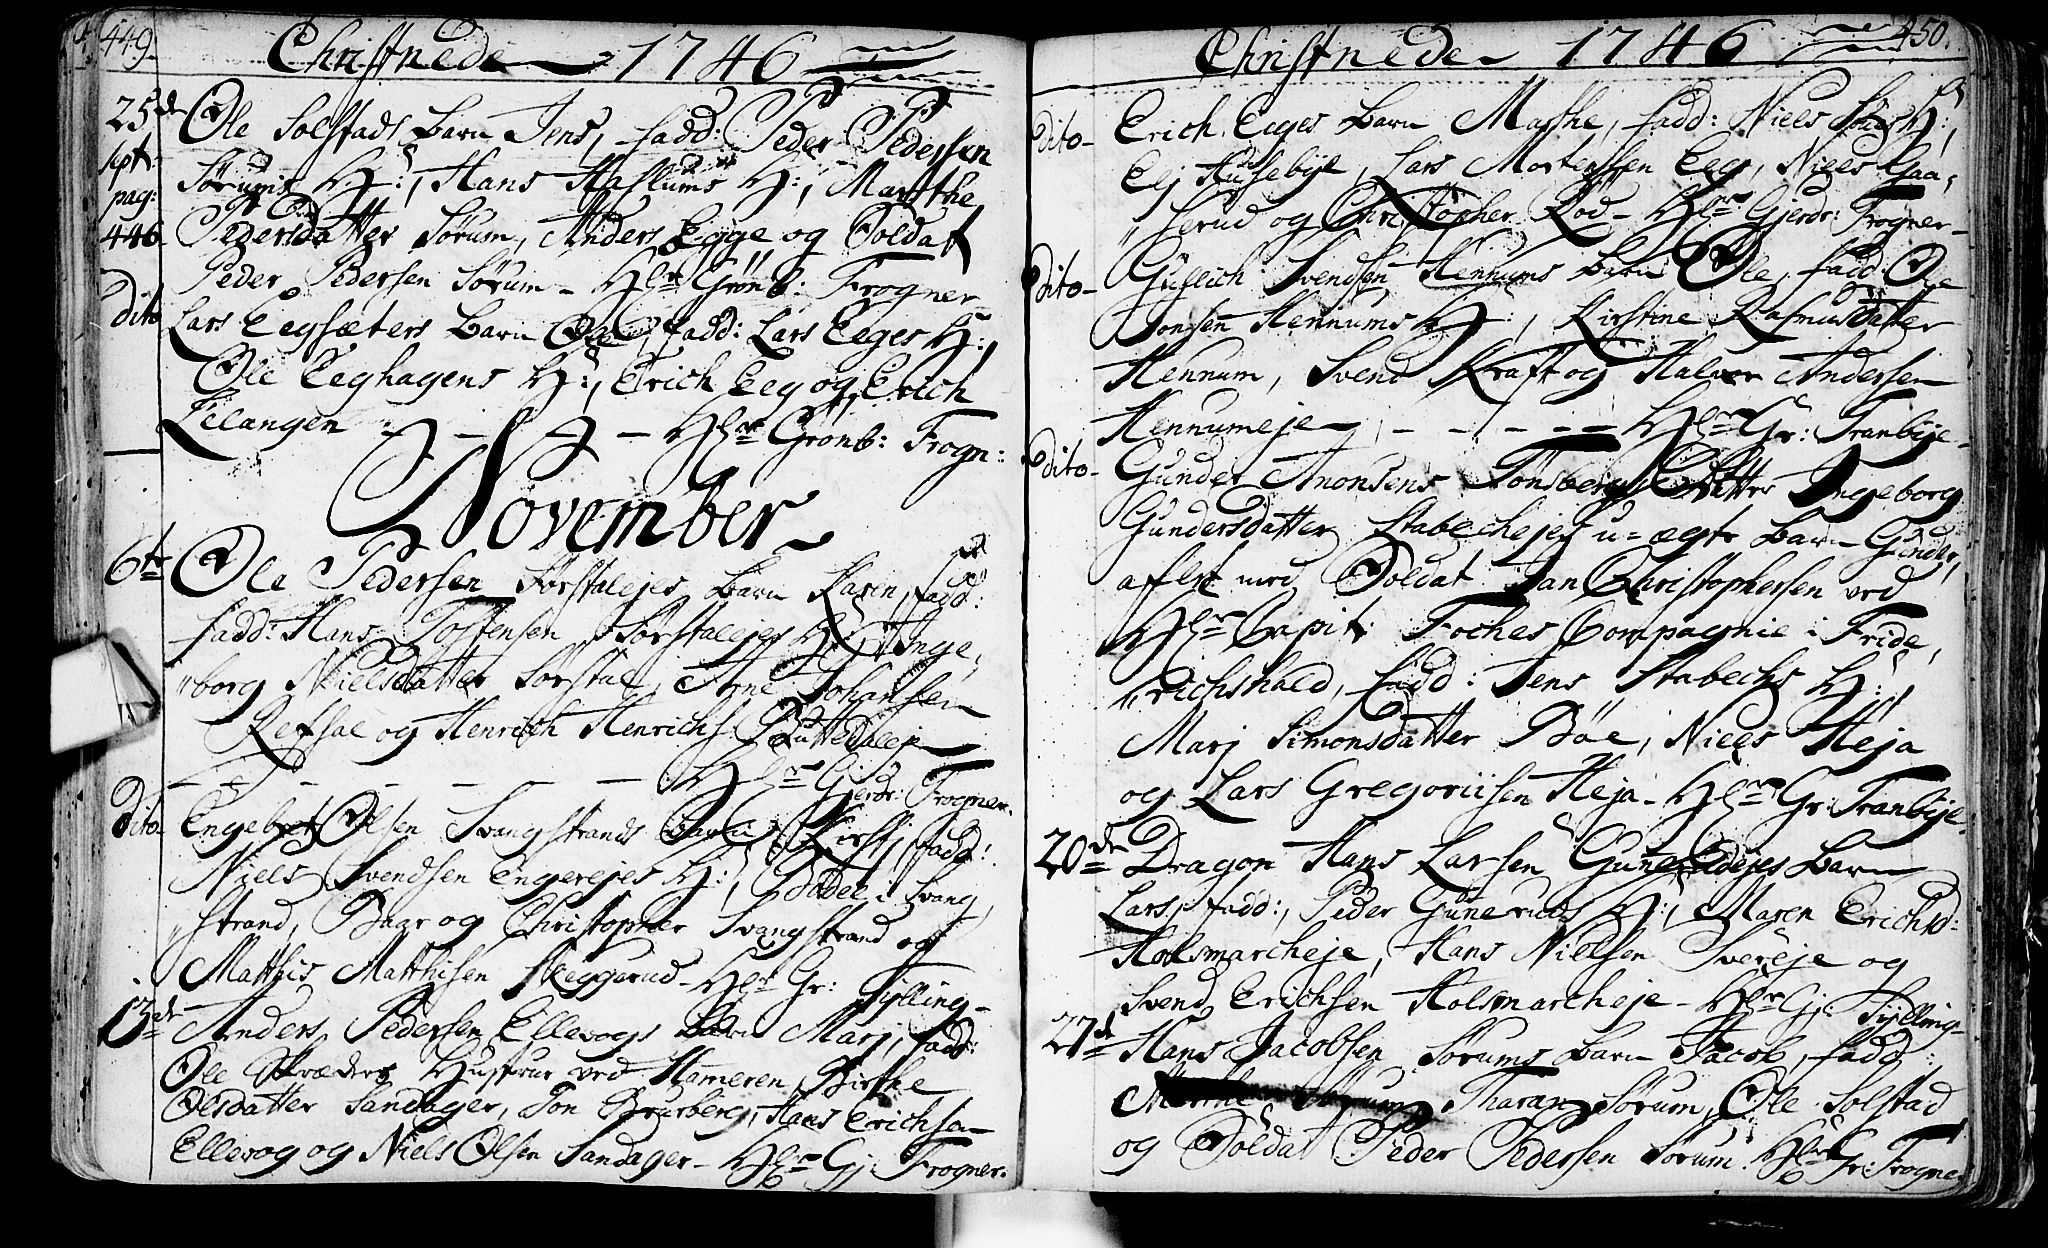 449.
Christnede 1746
25de Ole Solstads barn Jens, fadd: Peder Pedersen
sept: Sørums H:, Hans Haslums H:, Marthe
pag: 446. Pedersdatter Sørum, Anders Egge og Soldat
Peder Pedersen Sørum - Hr Grønb: Frogner
dito Lars Eegsæters barn Ole, fadd: Lars Eeges H:,
Ole Eeghagens H:, Erich Eeg og Erich
Lilangen - - - Hr Grønb: Frogn:
November
6te Ole Pedersen Sørstalejes barn Karen, fadd:
fadd: Hans Tostensen Sørstalejes H: Inge,
"borg Nielsdatter Sørstal, Arne Johansen
Refsal og Henrich Henrichs: Guttedaleje
- - - - - - Hr Gjerdr: Frogner.
dito Engebret Olsen Svangstrands barn Kirsti, fadd:
Niels Svendsen Engerejes H:, Bodel i Svang,
"strand, Baar og Christopher Svangstrand og
Matthis Matthisen Skeggerud - Hr Gr: Sylling -
13de Anders Pedersen Ellevogs barn Marj, fadd:
Ole Skræders Hustrue ved Hameren, Birthe
Olsdatter Sandager, Jon Bruberg, Hans Erichsen
Ellevog og Niels Olsen Sandager - Hr Gj: Frogner.
450.
Christnede 1746
dito - Erich Eeges barn Marthe, fadd: Niels H:,
Eej Husebye, Lars Mortensen Eeg, Niels Gaa,
"serud og Christopher Rød - Hr Gjerdr: Frogner -
dito - Gullich Svendsen Hennums barn Ole, fadd: Ole
Jonsen Hennums H:, Kirstine Rasmusdatter
Hennum, Svend Kraft og Halvor Andersen
Hennumeje - - - - - Hr Gr: Tranbye -
dito - Gunder Anonsens Tønsberg Datter Ingeborg
Gundersdatter Stabechejes u-ægte barn Gunder,
aflet med Soldat Jan Christophersen ved
Hr Capit: Foches Compagnie i Fride,
"richshald, fadd: Jens Stabechs H:,
Marj Simonsdatter Bøe, Niels Heja
og Lars Gregoriisen Heja - Hr Gr: Tranbye.
20de Dragon Hans Larsen barn
Lars, fadd:, Peder Guneruds H:, Maren Erichsd:
Holsmarcheje, Hans Nielsen Svereje og
Svend Erichsen Holsmarcheje - Hr Gj: Sylling -
27de Hans Jacobsen Sørums barn Jacob, fadd:
Marthe Sørum, Tharan Sørum, Ole Solstad
og Soldat Peder Pedersen Sørum. Hr Gr: Frogne